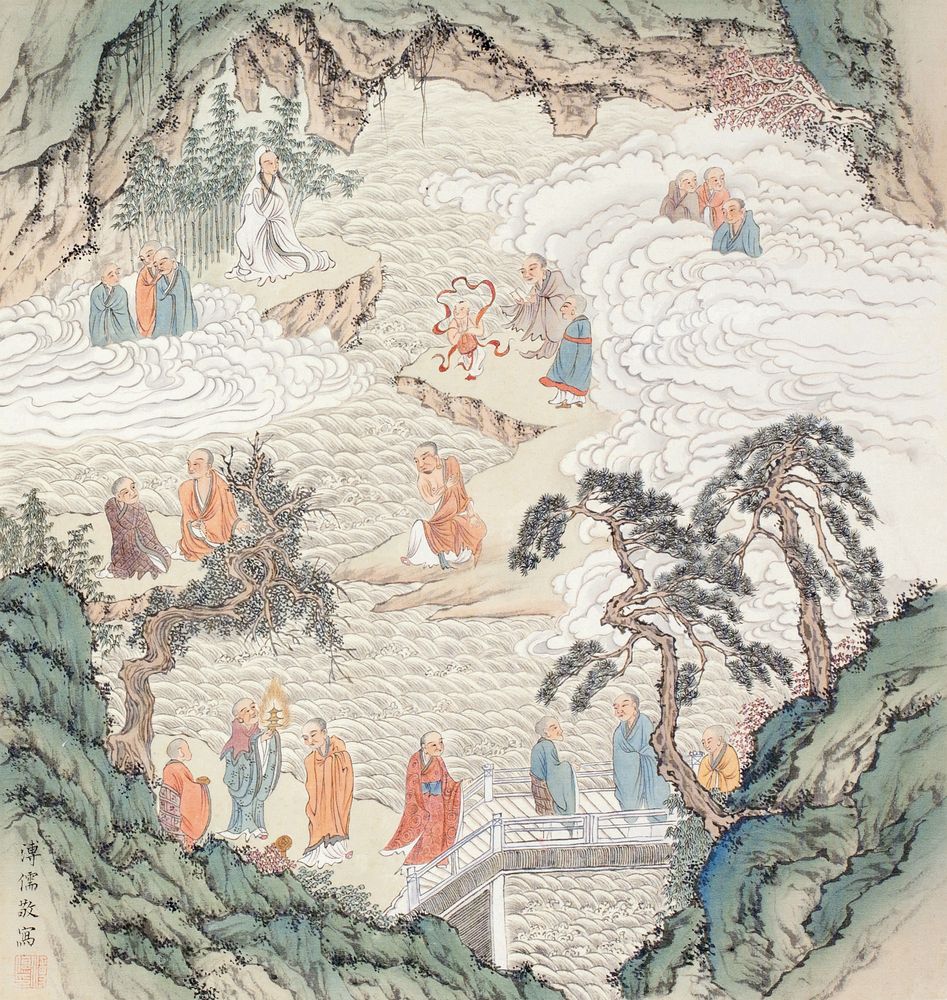 溥儒敬寫